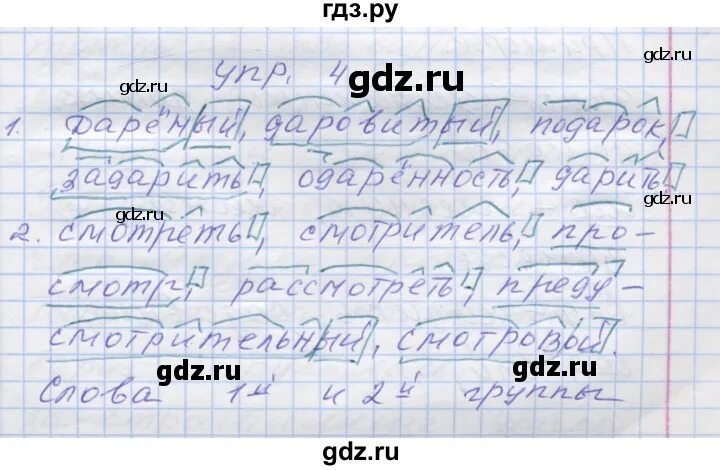 гдз.ру
упр. 4
gdz.ru
gdz.ru
1. Дарёный, даровитый, подарок,
задарить, одарённость, дарить.
gdz.ru
gdz.ru
2. смотреть, смотритель, про-
смотр, рассмотреть, преду-
смотрительный, смотровой.
gdz.ru
gdz.ru
Слова 1й и 2й группы
gdz.ru